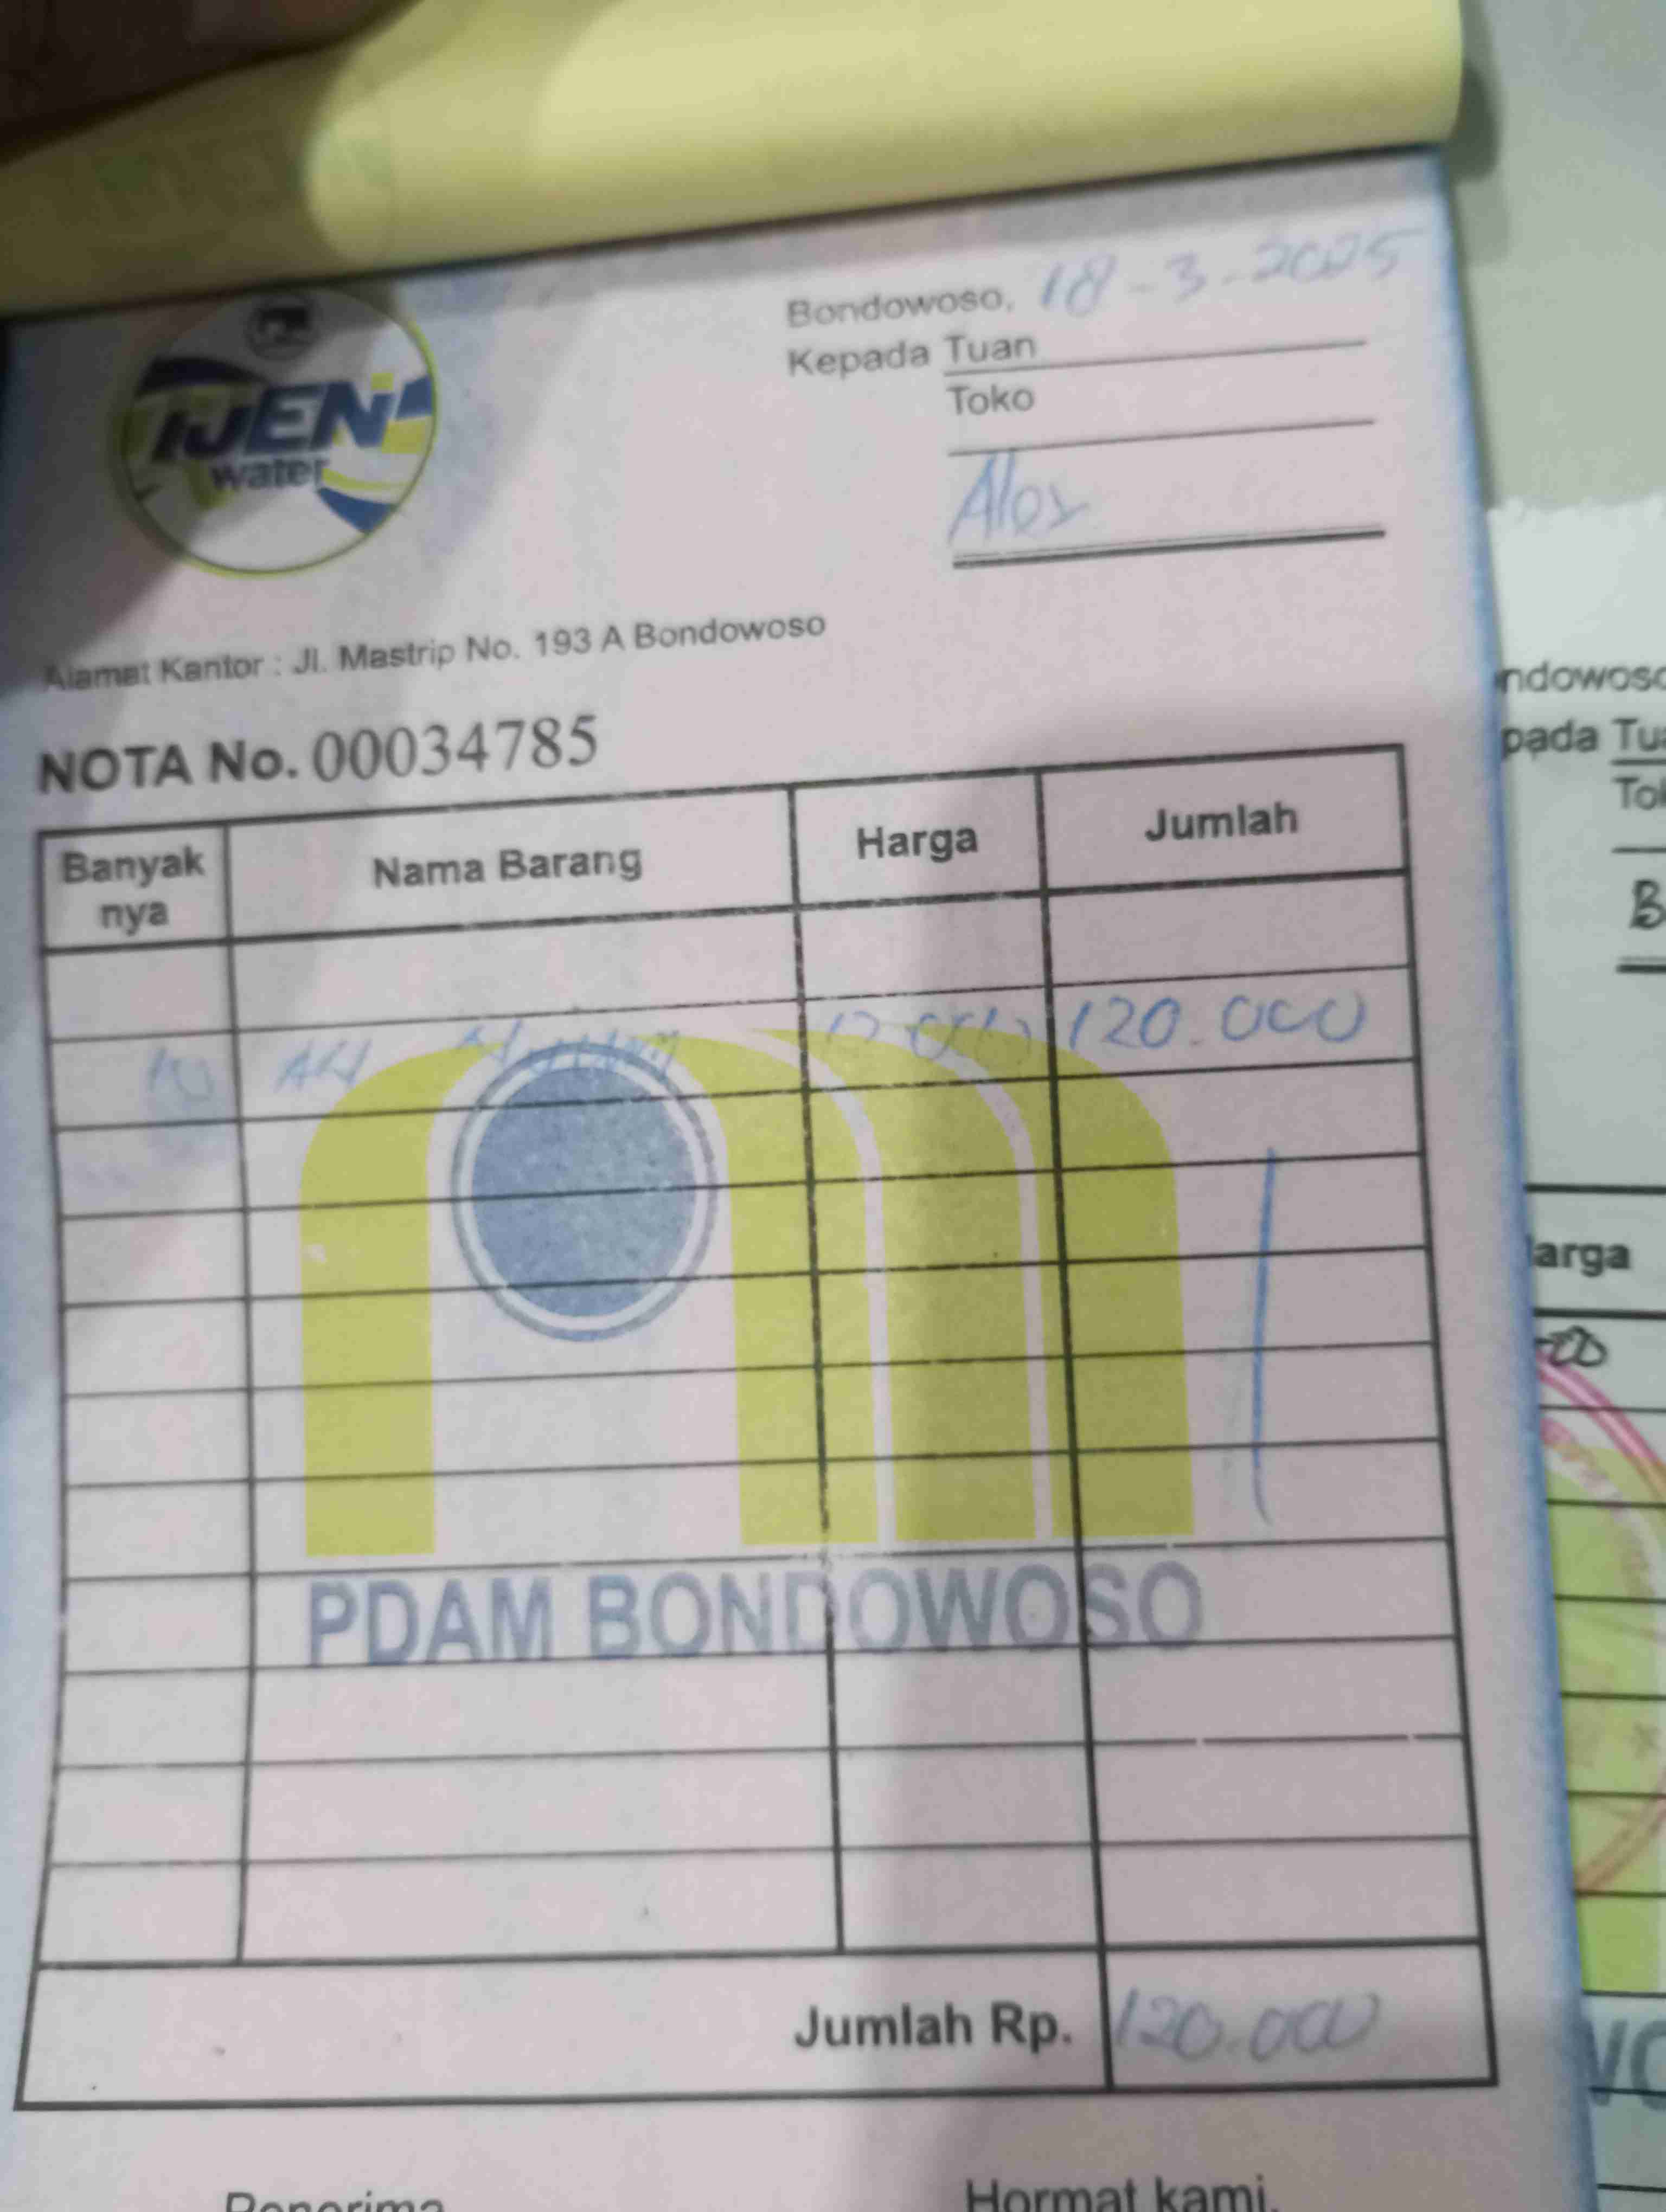 IJEN
water
Bondowoso, 18-3-2025
Kepada Tuan
Toko
Alex
Alamat Kantor : Jl. Mastrip No. 193 A Bondowoso
NOTA No. 00034785
Banyak nya Nama Barang Harga Jumlah
10 120.000
PDAM BONDOWOSO
Jumlah Rp. 120.000
Penerima Hormat kami,
ndowoso
pada Tua
Tok
B
arga